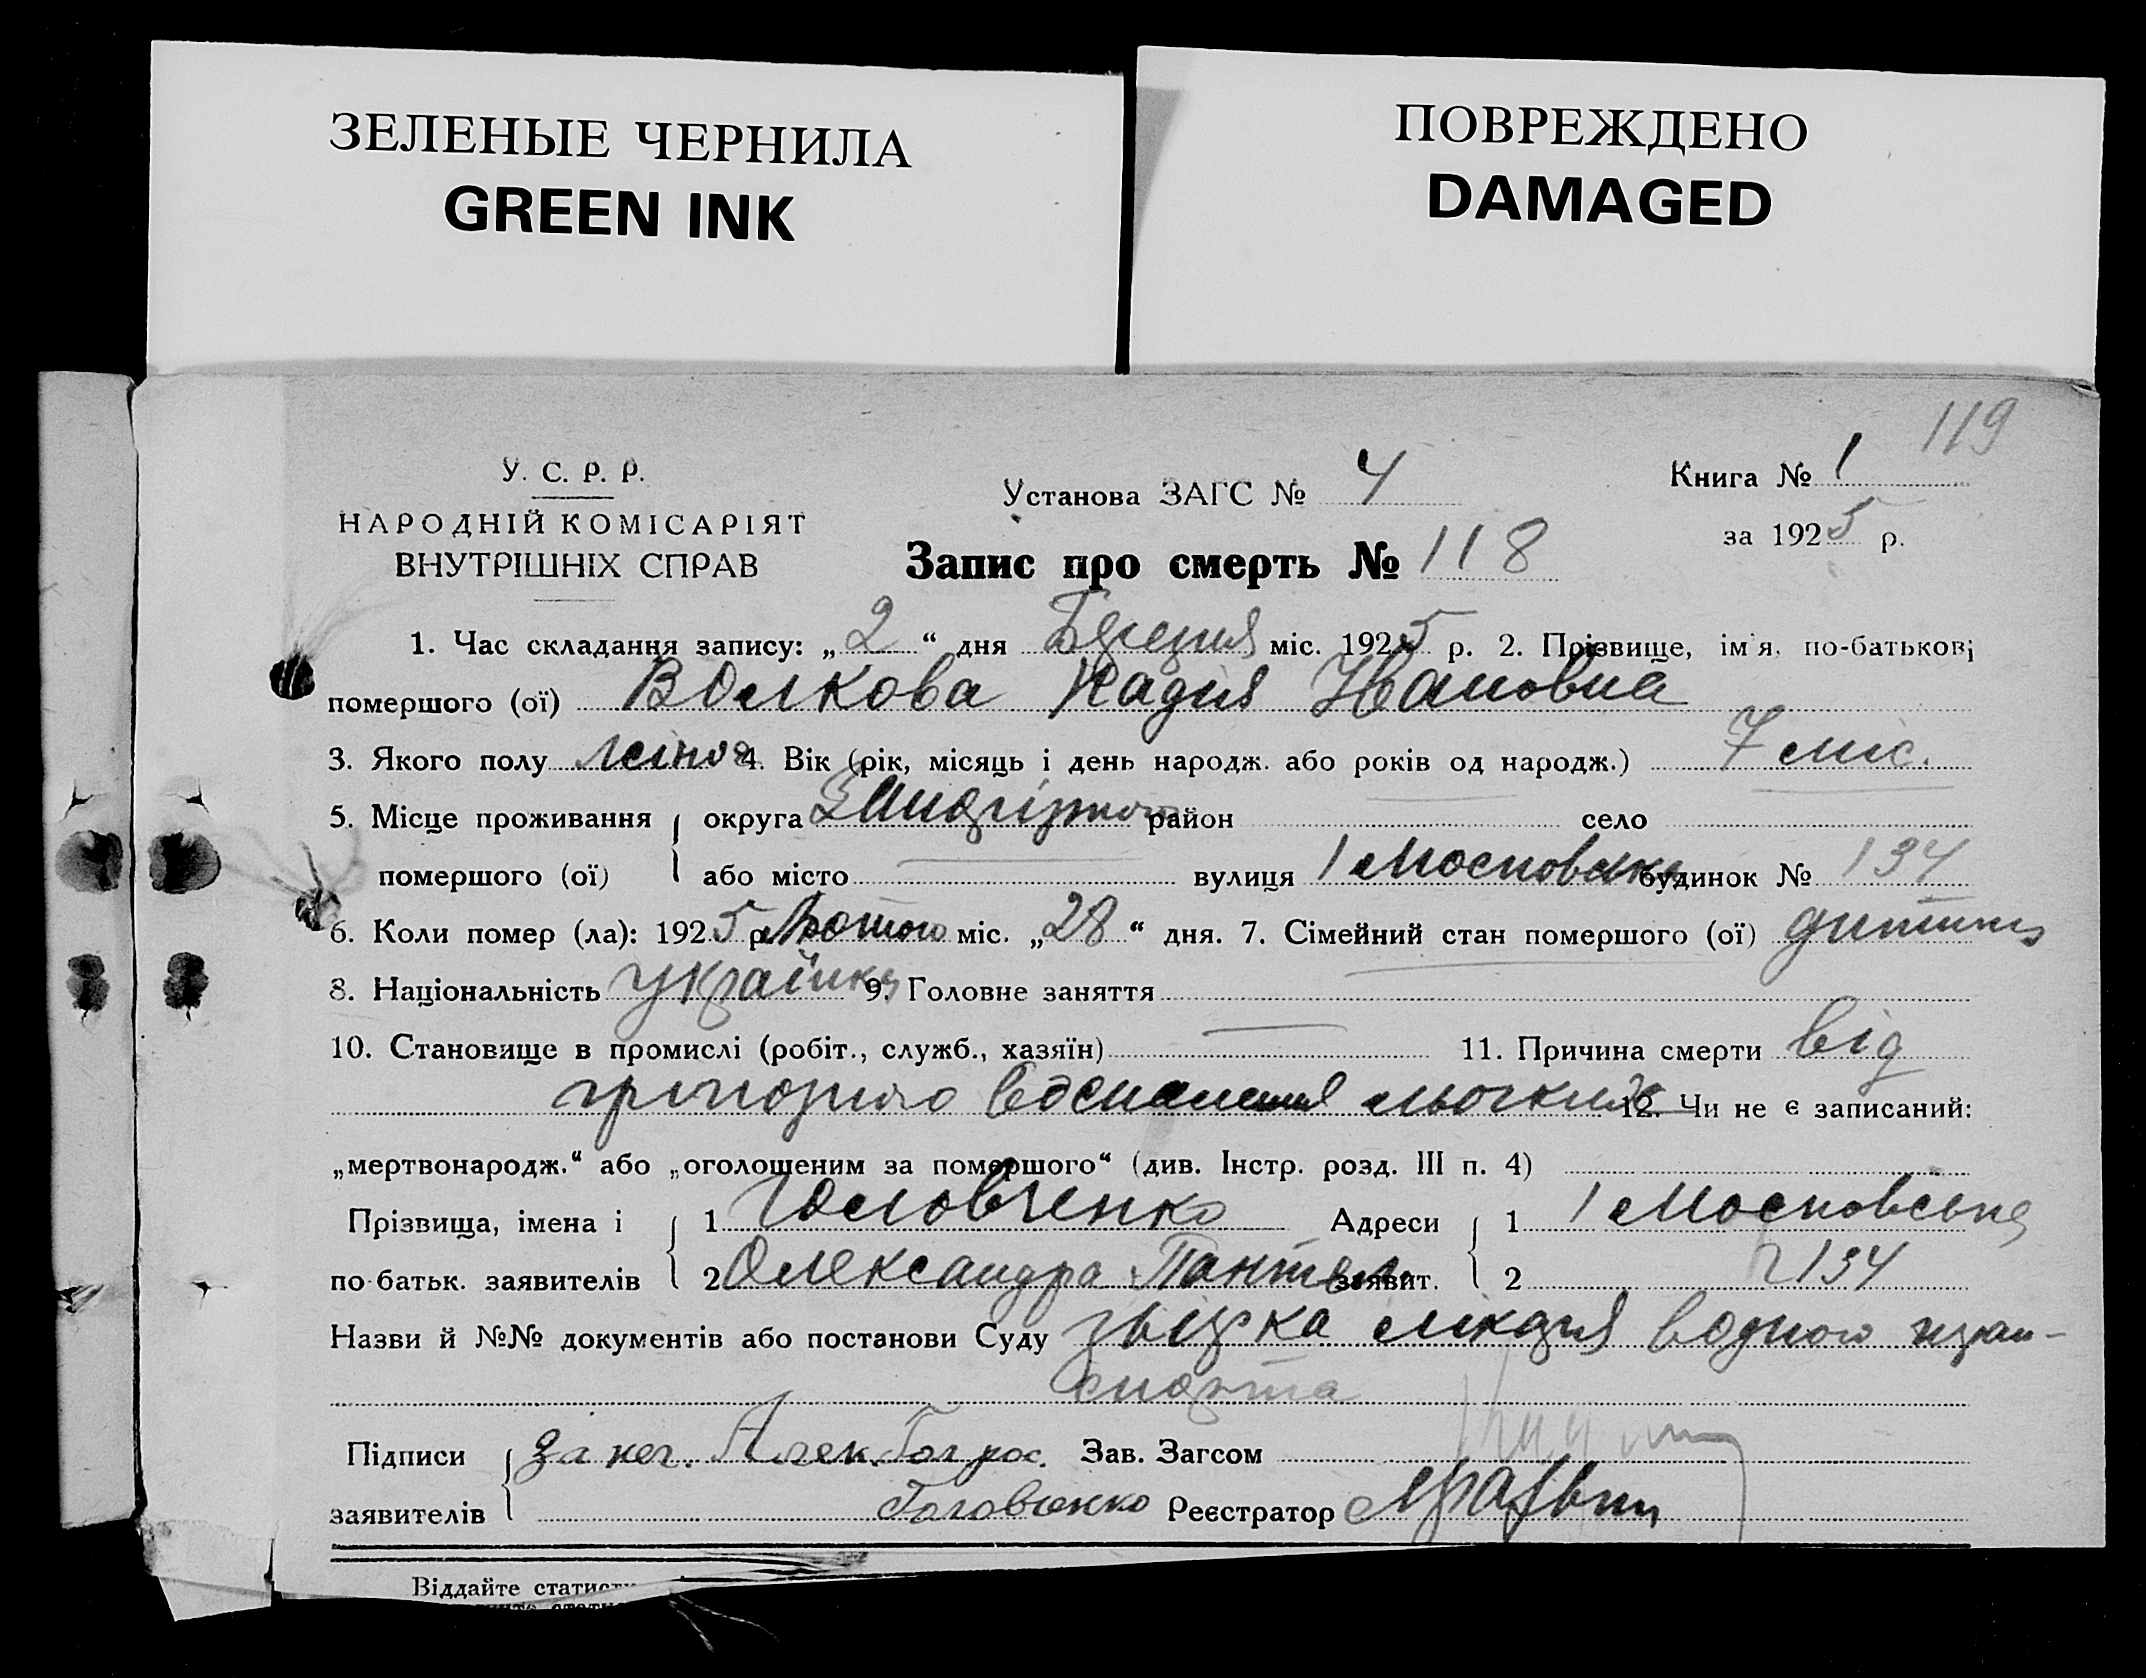 ЗЕЛЕНЫЕ ЧЕРНИЛА
GREEN INK
ПОВРЕЖДЕНО
DAMAGED
119
У. С. Р. Р.
НАРОДНІЙ КОМІСАРІЯТ
ВНУТРІШНІХ СПРАВ
Установа ЗАГС № 4
Книга № 1
за 1925 р.
Запис про смерть № 118
1. Час складання запису: „2“ дня Березня міс. 1925 р. 2. Прізвище, ім'я, по-батькові
помершого (ої) Волкова Надія Івановна
3. Якого полу жіноч. 4. Вік (рік, місяць і день народж. або років од народж.) 7 міс.
5. Місце проживання округа район село
помершого (ої) або місто вулиця 1 Московська будинок № 134
6. Коли помер (ла): 1925 р. Лютого міс. „28“ дня. 7. Сімейний стан помершого (ої) дитина
8. Національність українка 9. Головне заняття
10. Становище в промислі (робіт., служб., хазяїн) 11. Причина смерти від
12. Чи не є записаний:
„мертвонародж.“ або „оголошеним за помершого“ (див. Інстр. розд. III п. 4)
Прізвища, імена і 1 Головченко Адреси 1 1 Московська
по-батьк. заявителів 2 Олександра Пантел. заявит. 2 134
Назви й №№ документів або постанови Суду лікаря водного тран-
спорта
Підписи за нег. Алек. Зав. Загсом
заявителів Головченко Реєстратор
Віддайте статист